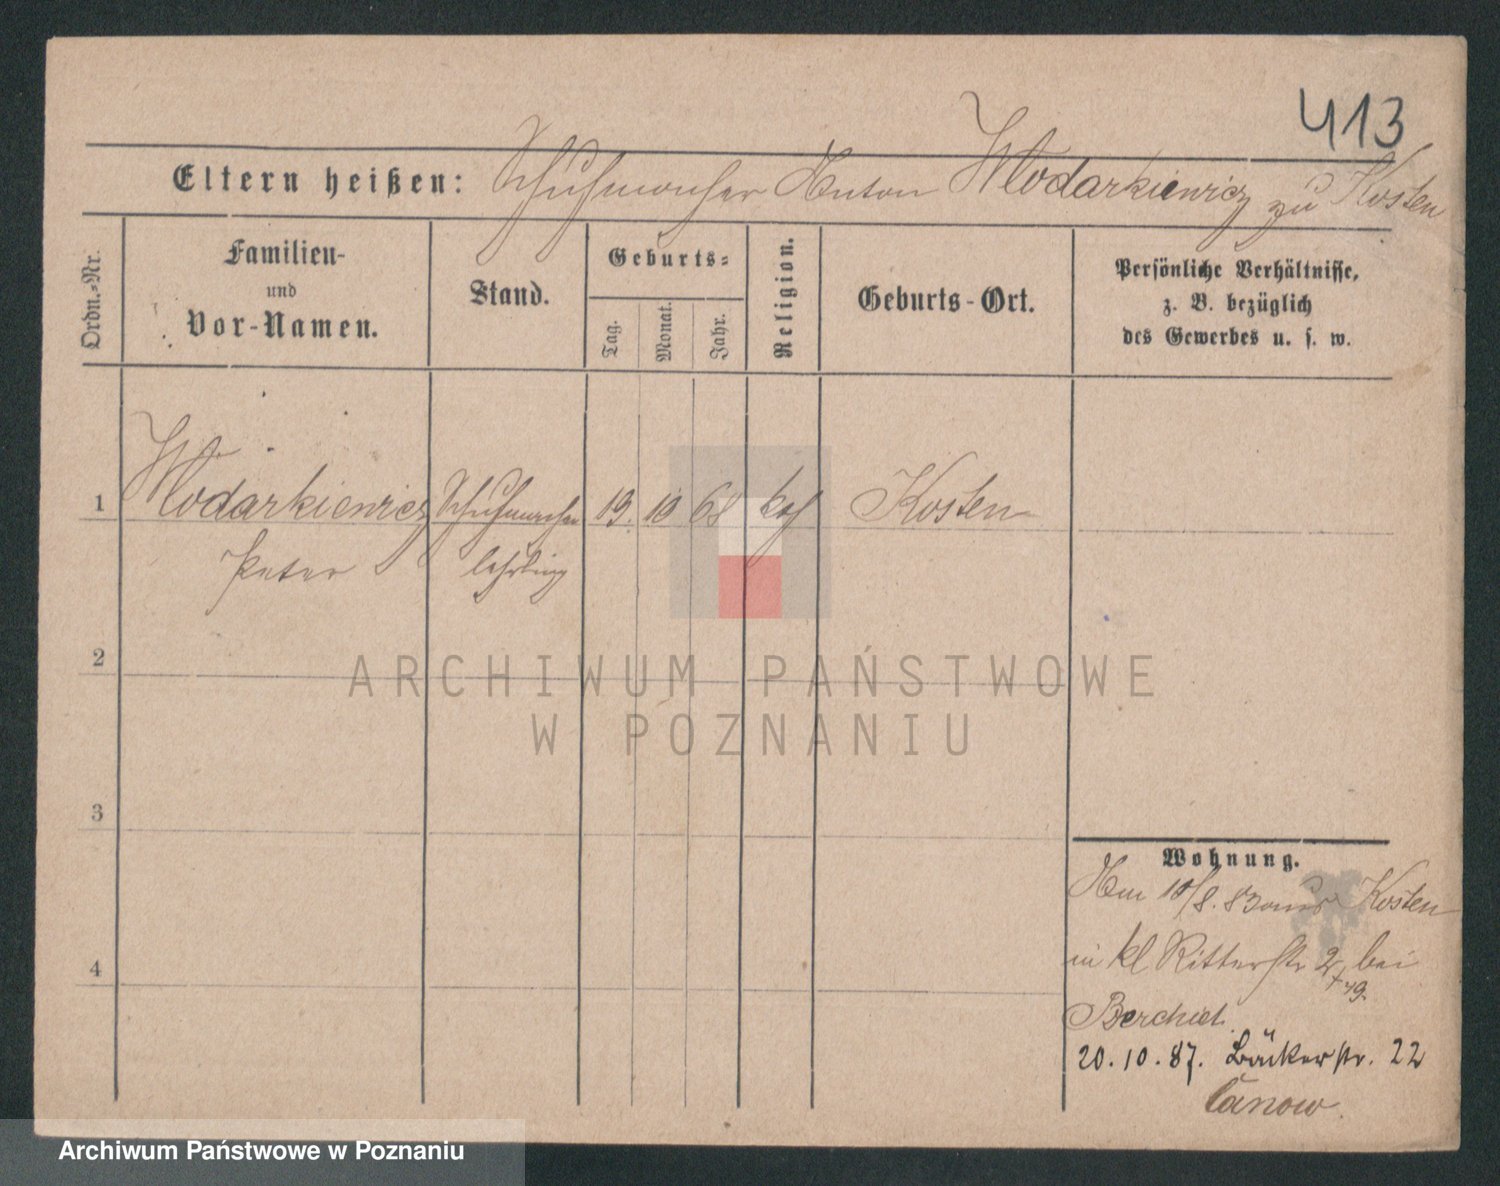 413
Eltern heißen: Schuhmacher Anton Wlodarkiewicz zu Kosten
Ordn.-Nr.
Familien-
und
Vor-Namen.
Stand.
Geburts-
Tag.
Monat.
Jahr.
Religion.
Geburts-Ort.
Persönliche Verhältnisse,
z. B. bezüglich
des Gewerbes u. s. w.
1 Wlodarkiewicz Schuhmacher 19. 10 68 kath Kosten
Peter lehrling
2
ARCHIWUM PAŃSTWOWE
W POZNANIU
3
Wohnung.
Am 10/8. 83 aus Kosten
in kl Ritterstr 2 bei
4
20.10.87. Bäckerstr. 22
Archiwum Państwowe w Poznaniu